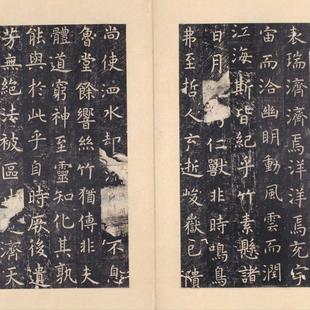 表瑞濟濟焉洋洋焉充宇
宙而洽幽明動風雲而潤
江海斯皆紀乎竹素懸諸
日月仁獸非時鳴鳥
弗至哲人云逝峻嶽已隤
尚使泗水却不息
魯堂餘響絲竹猶傳非夫
體道窮神至靈知化其孰
能與於此乎自時厥後遺
芳無絕法被區濟天